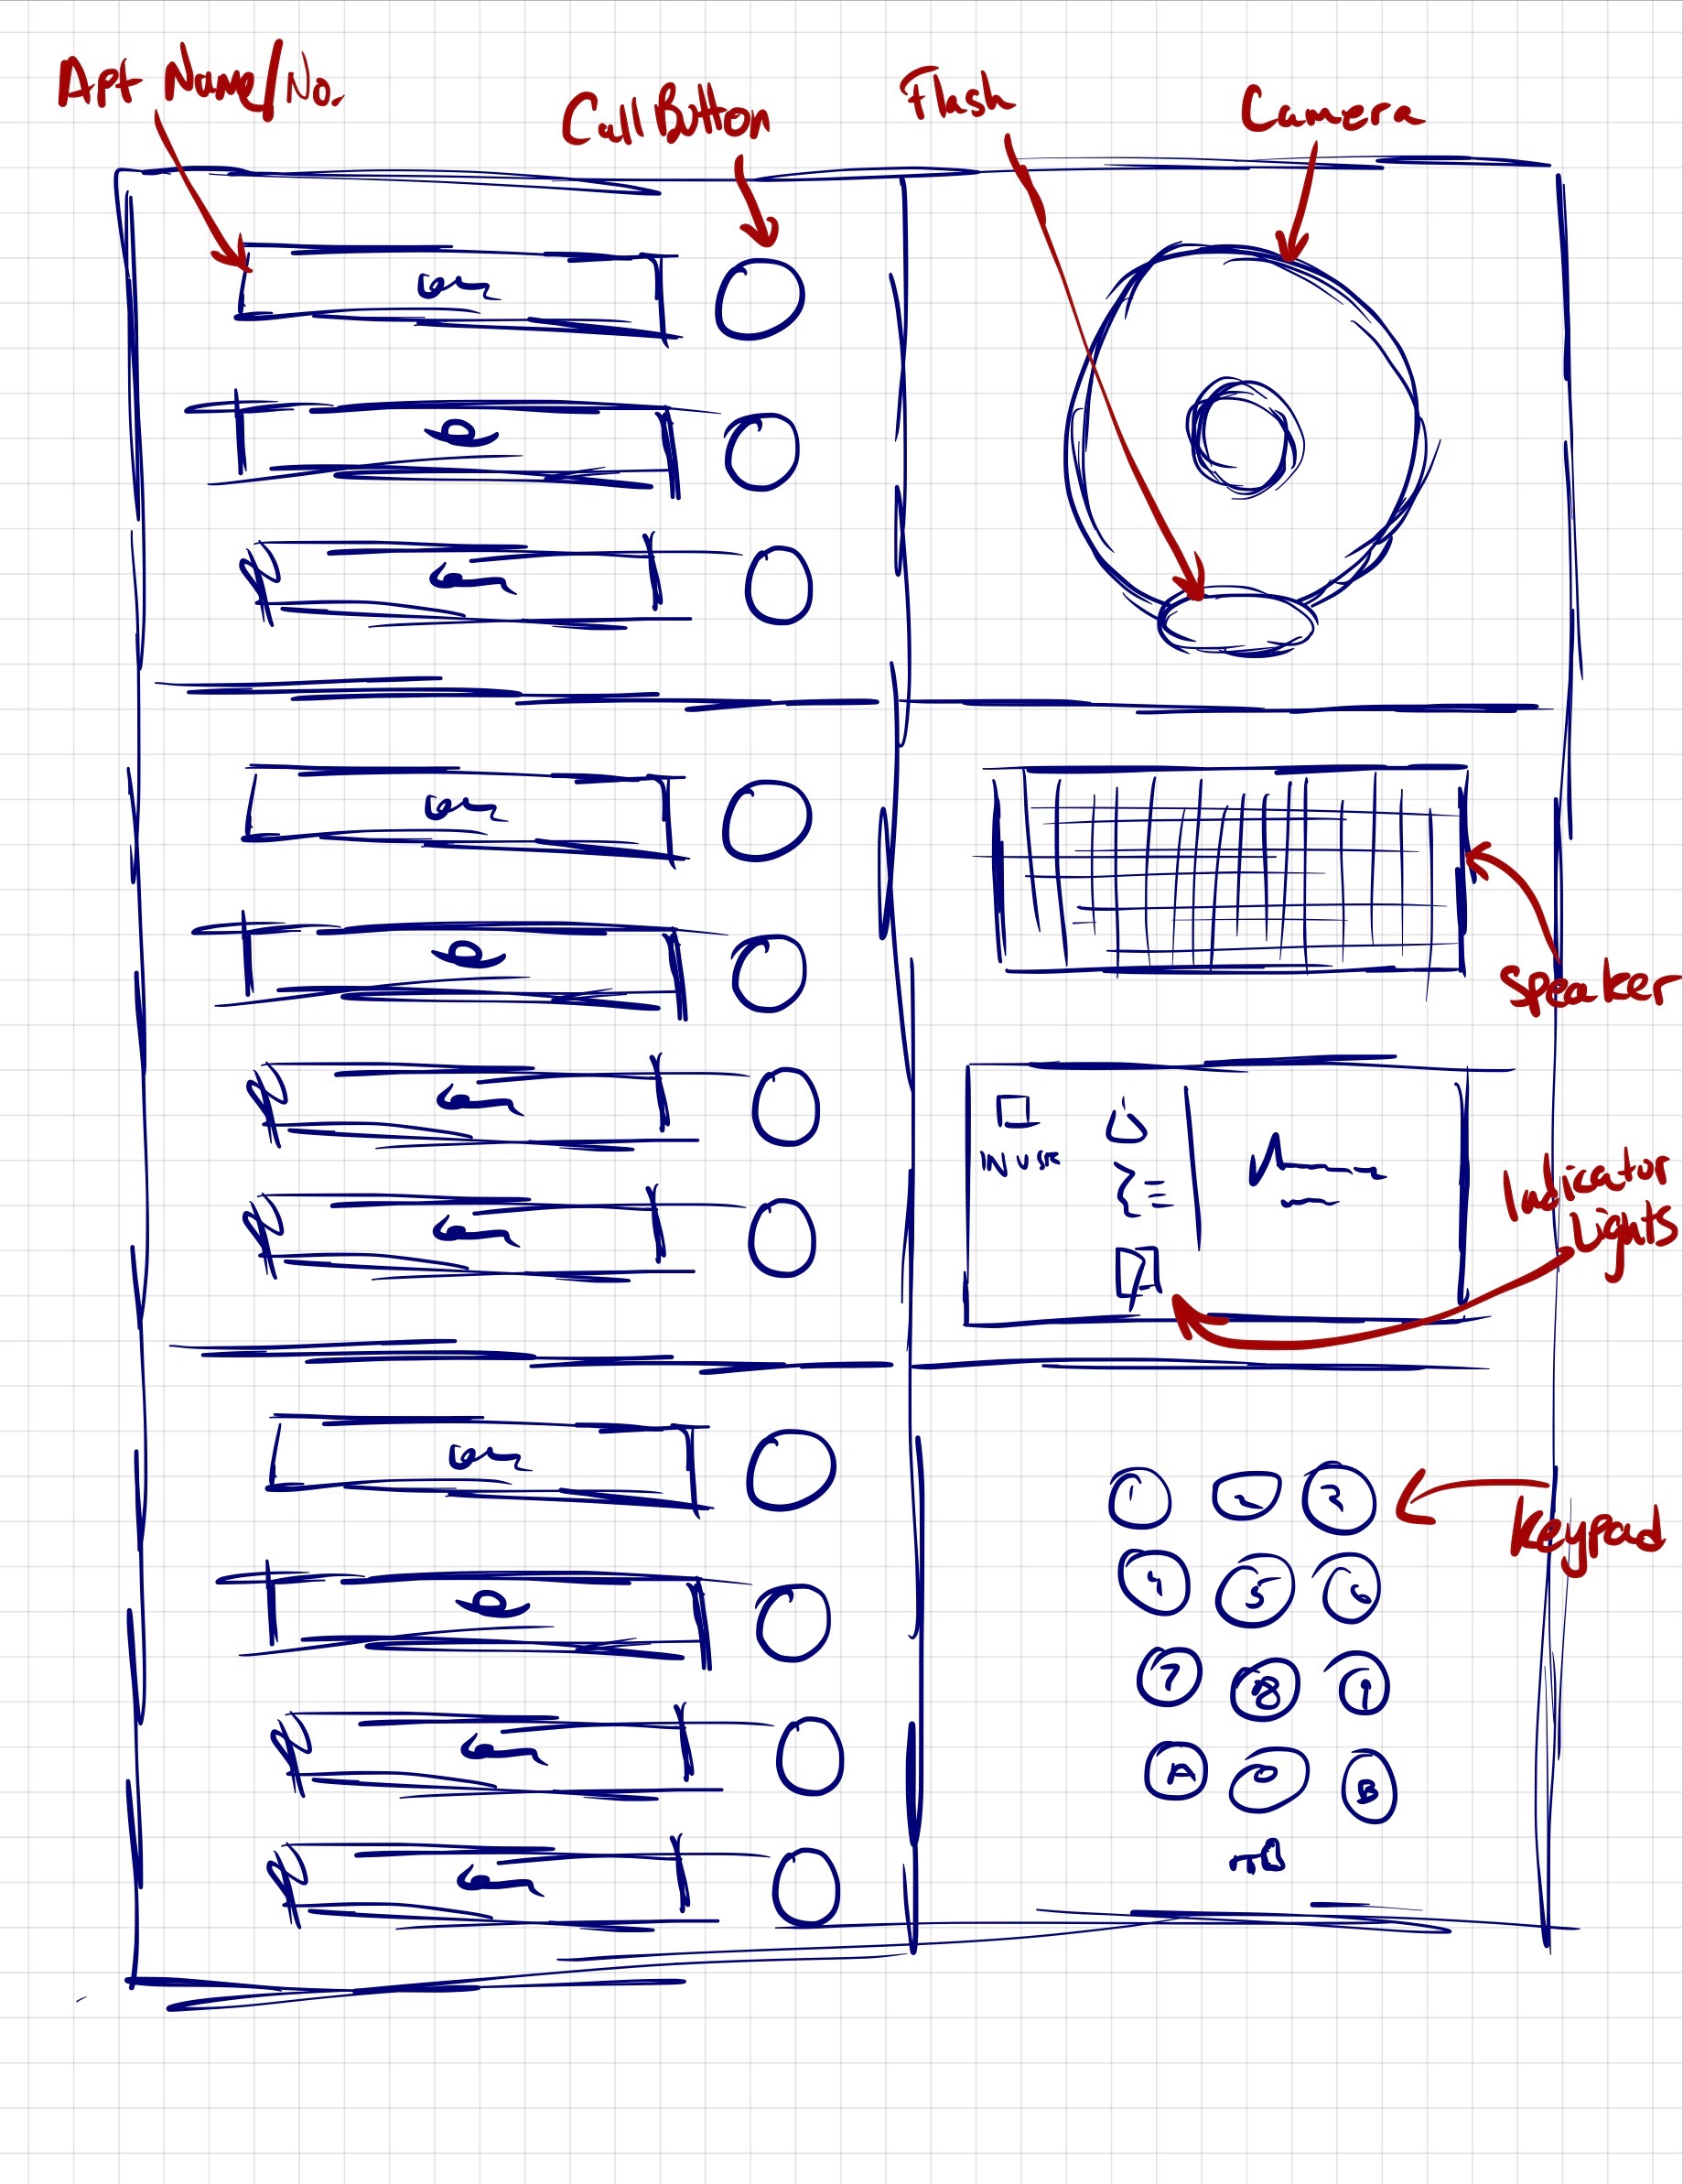 Apt Name/No.
Call Button
Flash
Camera
Speaker
IN USE
Indicator
Lights
Keypad
1 2 3
4 5 6
7 8 9
A 0 B